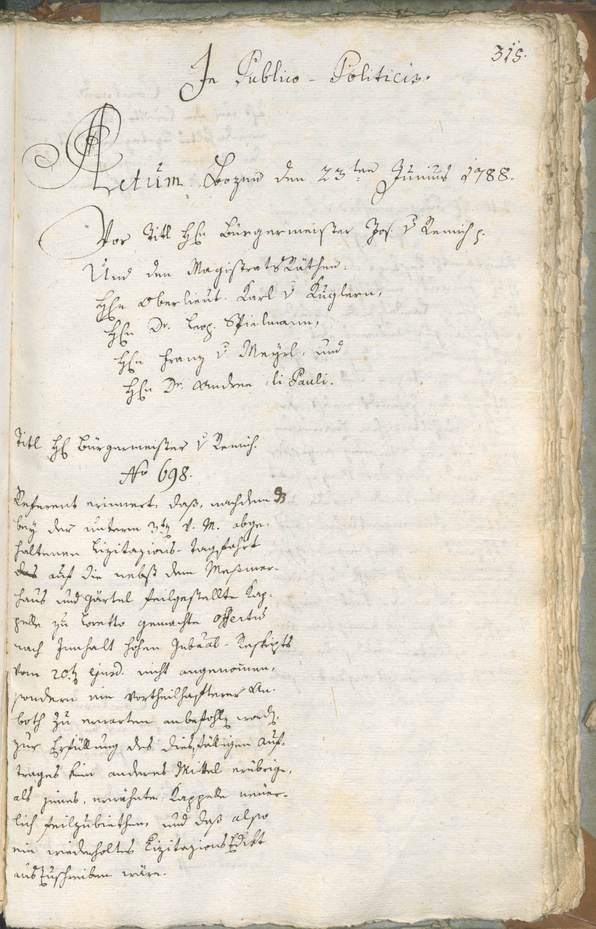 315.
In Publico-Politicis.
Actum Bozen den 23ten Junius 1788.
Vor Titl Hℓn Bürgermeister Jos. v Remich p.
Und den Magistratsräthen.
Hℓn Oberlieut. Karl v Kuglern,
Hℓn Dr. Leop. Spielmann,
Hℓn Franz v Meyrl, und
Hℓn Dr. Andree di Pauli.
Titl Hℓ Bürgermeister v Remich.
No 698.
Referent erinnert, daß, nachdem
bey der unterm 3ten v. M. abge-
haltenen Lizitazions-Tagsfahrt
das auf die nebst dem Meßmer-
haus und Gärtel feilgestellte Kap-
pelle zu Loretto gemachte Offertus
nach Innhalt hohen Gubℓal-Reskripts
vom 20ten ejusd. nicht angenommen,
sondern ein vortheilhafterer An-
both zu erwarten anbefohlen word.
zur Erfüllung des diesfälligen Auf-
trages kein anderes Mittel erübrige,
als jenes, erwähnte Kappelle neuer-
lich feilzubiethen, und daß also
ein wiederholtes Lizitazions Edikt
auszuschreiben wäre.